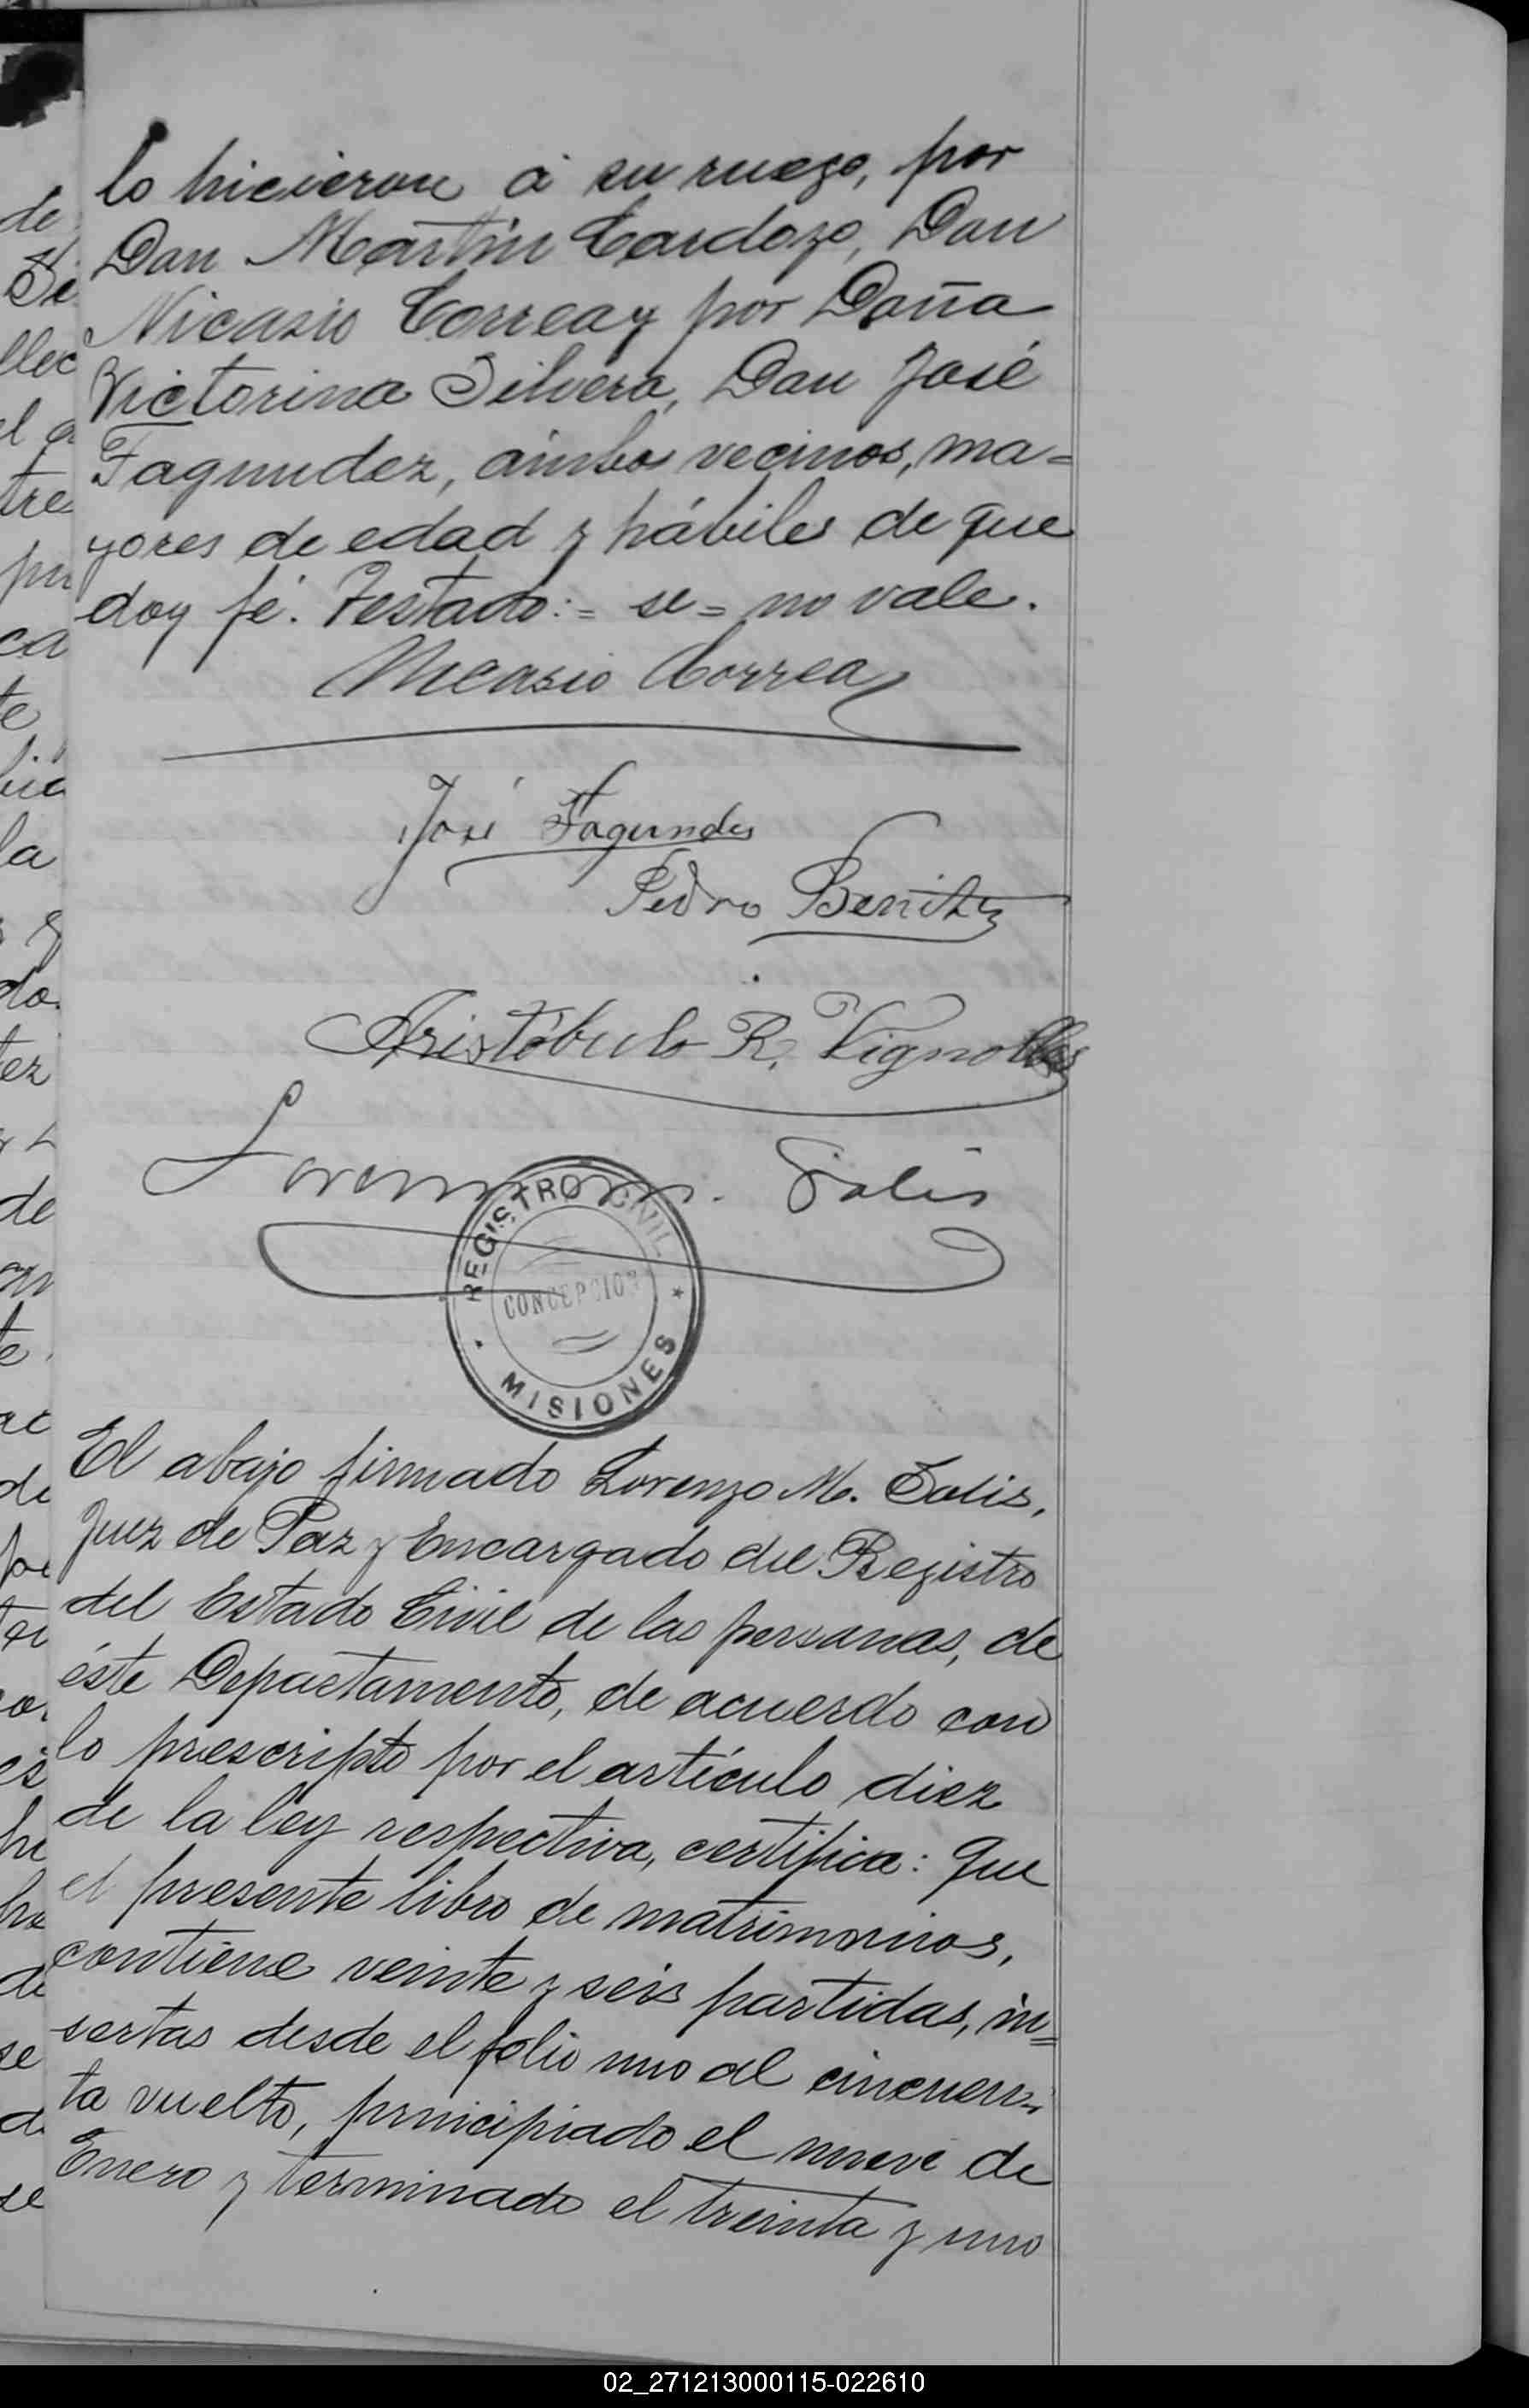 lo hicieron á su ruego, por
Don Martin Cardozo, Don
Nicasio Correa y por Doña
Victorina Silvera, Don José
Fagundez, ámbos vecinos, ma=
yores de edad y hábiles de que
doy fé. Testado:= se= no vale.
Nicasio Correa
José Fagundes
Pedro Benitez
Aristóbulo R. Vignolles
Lorenzo M. Solis
REGISTRO CIVIL
CONCEPCION
MISIONES
El abajo firmado Lorenzo M. Solis,
Juez de Paz y Encargado del Registro
del Estado Civil de las personas, de
éste Departamento, de acuerdo con
lo prescripto por el artículo diez
de la ley respectiva, certifica: Que
el presente libro de matrimonios,
contiene veinte y seis partidas, in=
sertas desde el folio uno al cincuen=
ta vuelto, principiado el nueve de
Enero y terminado el treinta y uno
02_271213000115-022610